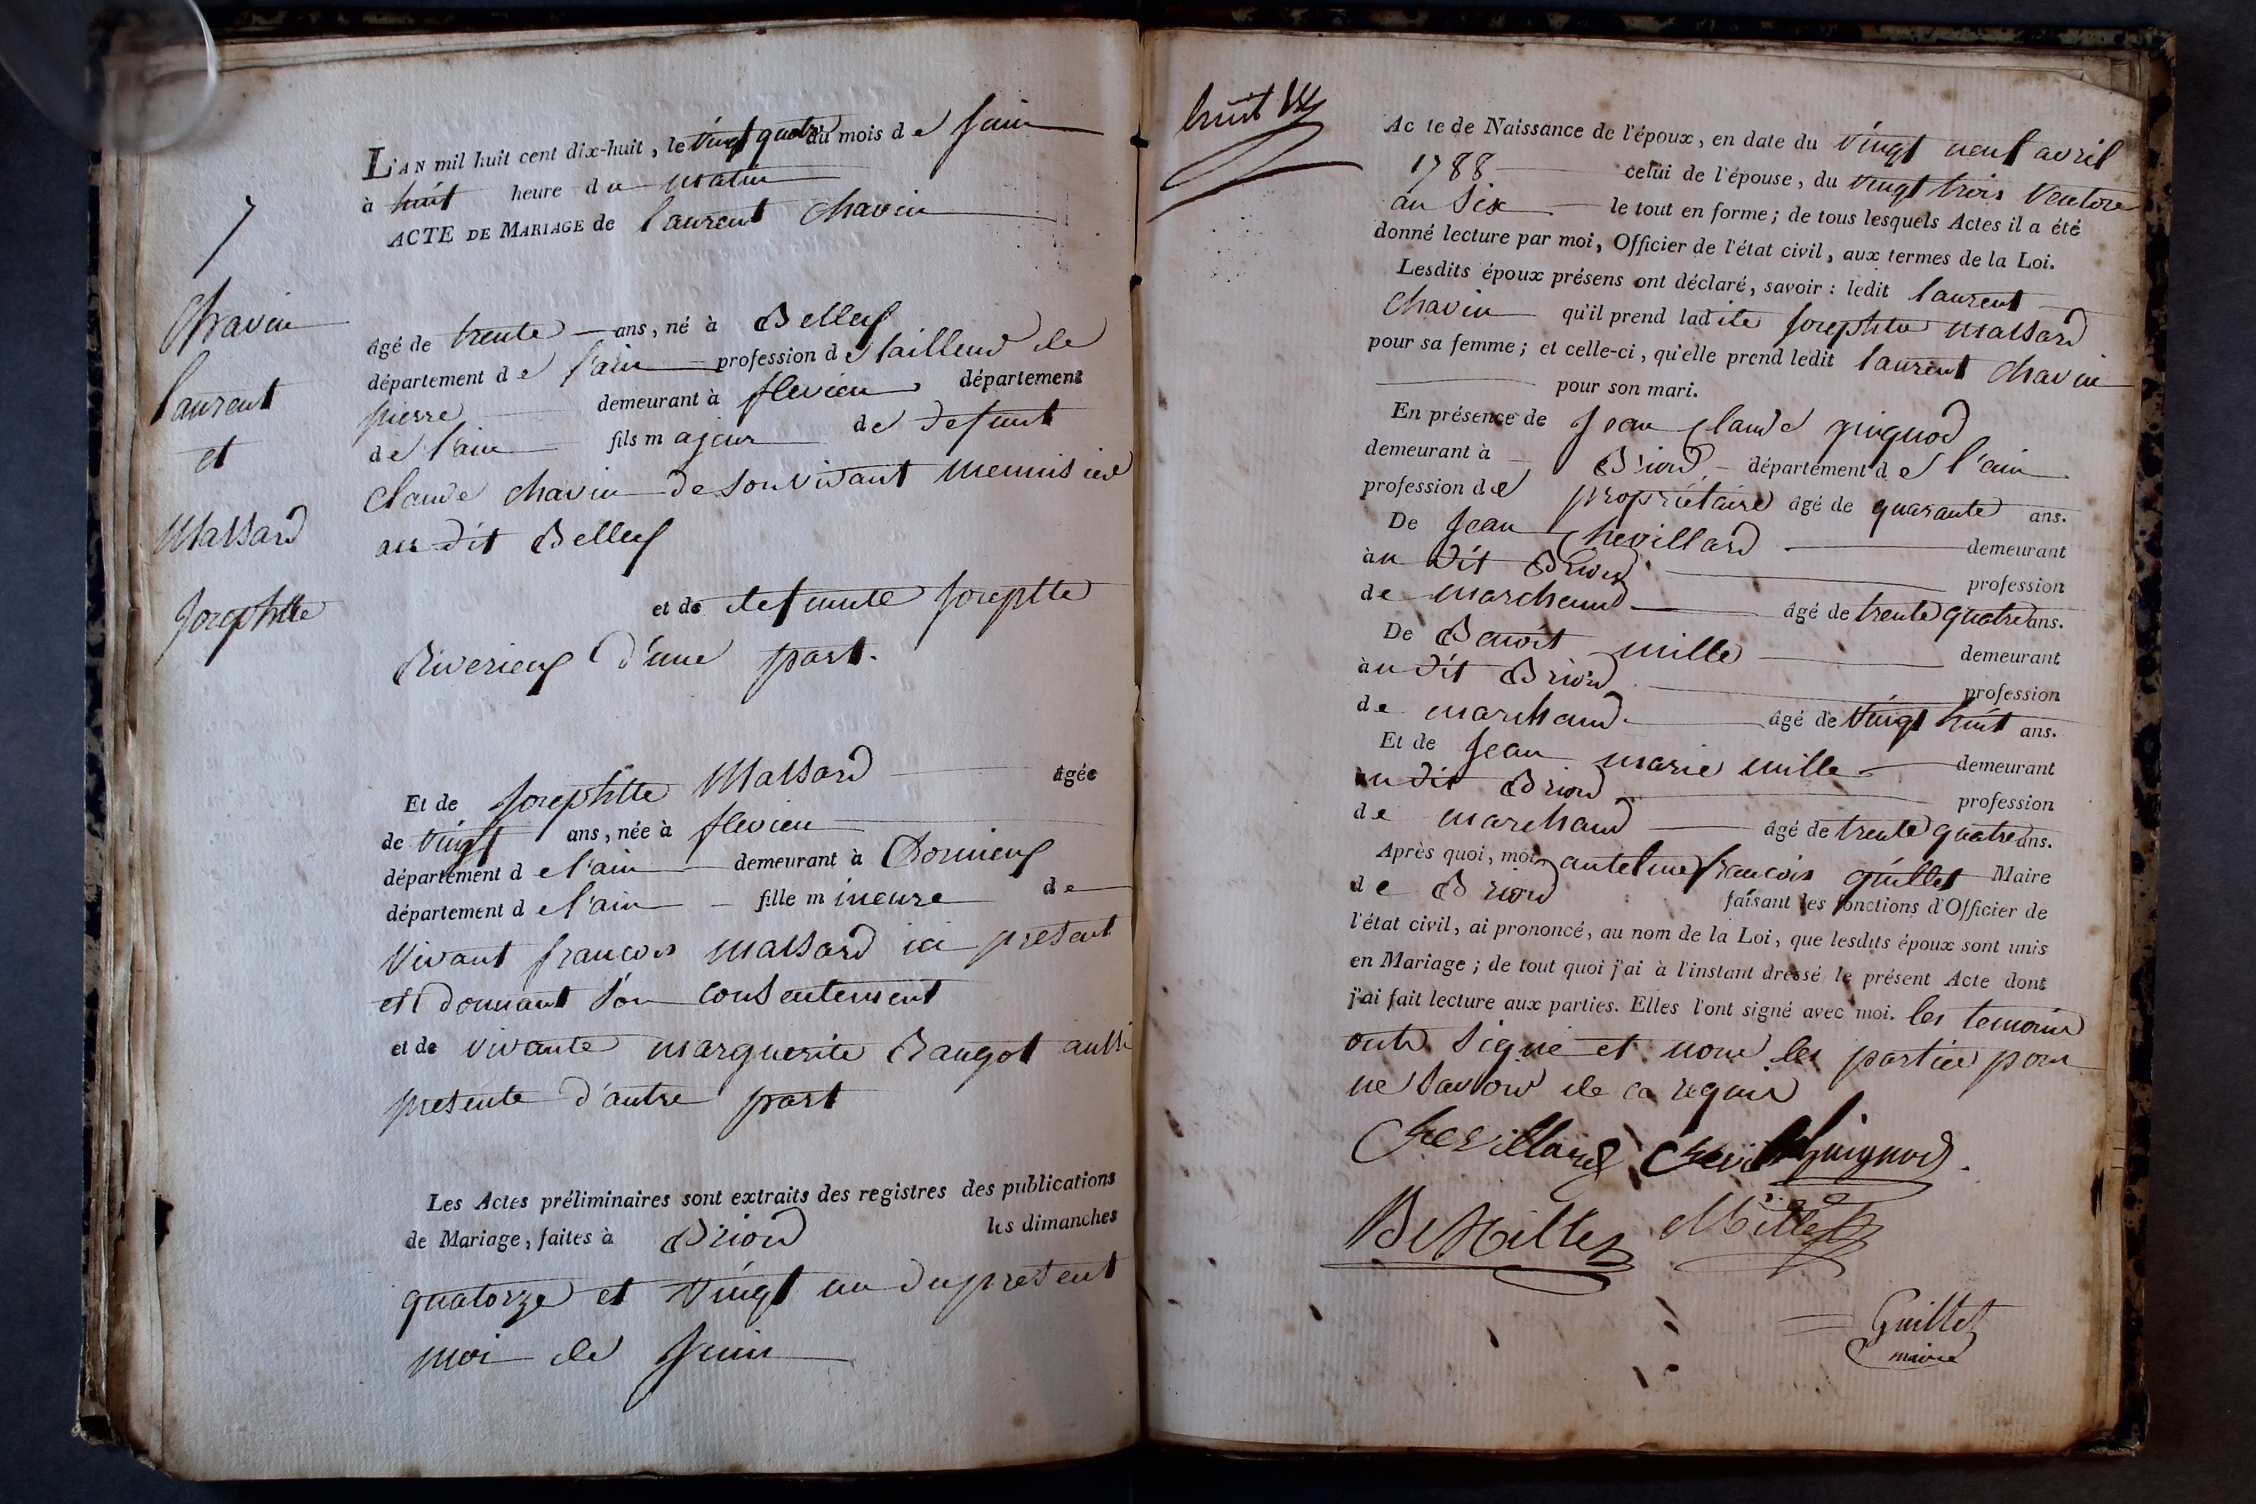 7
Chavin
laurent
et
Massard
Josephtte
L'AN mil huit cent dix-huit, le vingt quatre du mois de Juin
à huit heure du matin
ACTE DE MARIAGE de laurent Chavin
âgé de trente ans, né à Belley
département de l'ain profession de tailleur de
pierre demeurant à flevieu département
de l'ain fils majeur de defunt
Claude Chavin de son vivant menuisier
au dit Belley
et de defunte Joseptte
Riverieux d'une part.
Et de Josephtte Massard âgée
de vingt ans, née à flevieu
département de l'ain demeurant à Dornieux
département de l'ain fille mineure de
vivant francois Massard ici present
et donnant son consentement
et de vivante marguerite aussi
presente d'autre part
Les Actes préliminaires sont extraits des registres des publications
de Mariage, faites à Briord les dimanches
quatorze et vingt un du present
moi de Juin
huit
Acte de Naissance de l'époux, en date du vingt neuf avril
1788 celui de l'épouse, du vingt trois Ventose
an Six le tout en forme; de tous lesquels Actes il a été
donné lecture par moi, Officier de l'état civil, aux termes de la Loi.
Lesdits époux présens ont déclaré, savoir: ledit laurent
Chavin qu'il prend ladite Josephtte Massard
pour sa femme; et celle-ci, qu'elle prend ledit laurent Chavin
pour son mari.
En présence de Jean Claude guignod
demeurant à Briord département de l'ain
profession de propriétaire âgé de quarante ans.
De Jean Chevillard demeurant
au dit Briord profession
de marchand âgé de trente quatre ans.
De Benoit mille demeurant
au dit Briord profession
de marchand âgé de vingt huit ans.
Et de Jean marie mille demeurant
au dit Briord profession
de marchand âgé de trente quatre ans.
Après quoi, moi antelme francois guillet Maire
de Briord faisant les fonctions d'Officier de
l'état civil, ai prononcé, au nom de la Loi, que lesdits époux sont unis
en Mariage; de tout quoi j'ai à l'instant dressé le présent Acte dont
j'ai fait lecture aux parties. Elles l'ont signé avec moi. les temoins
onts signé et non les partier pour
ne savoir de ce requis
Chevillard guignod
B Mille Mille
Guillet
maire